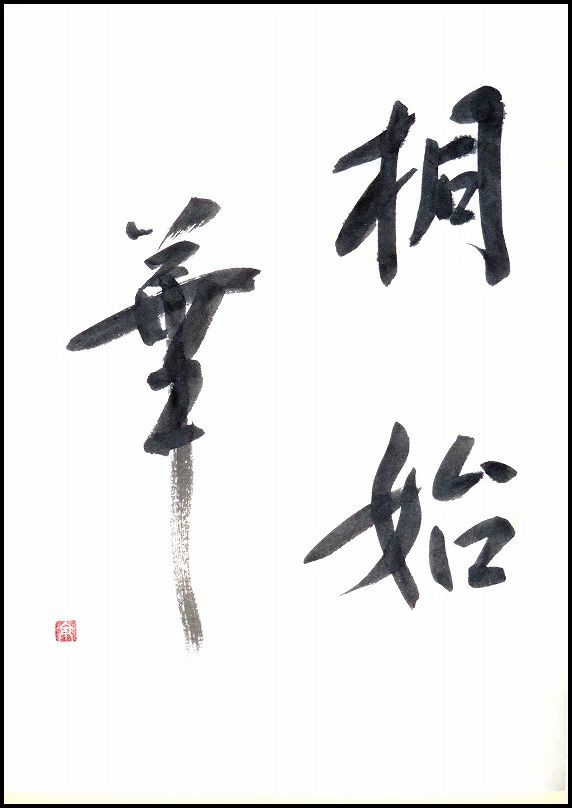 桐始
華